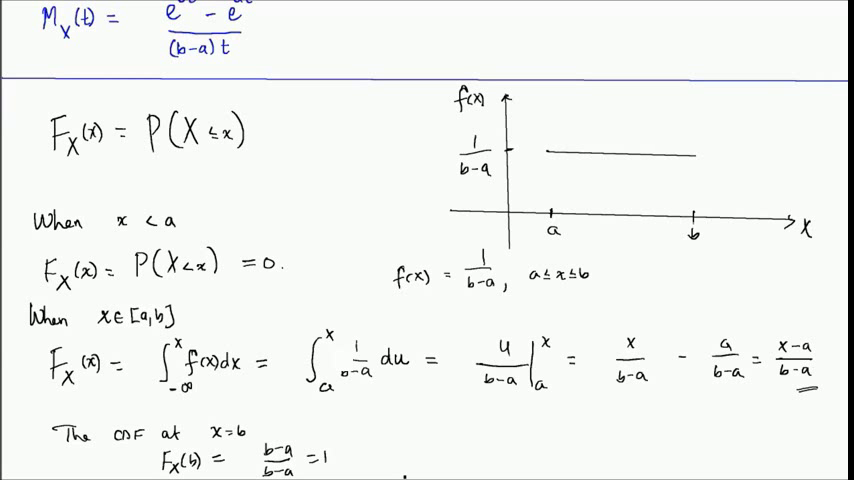 M_X(t) = (e^bt - e^at)/((b-a)t)
F_X(x) = P(X ≤ x)
f(x)
1/(b-a)
a b x
When x < a
F_X(x) = P(X < x) = 0.
f(x) = 1/(b-a), a ≤ x ≤ b
When x ∈ [a,b]
F_X(x) = ∫_{-∞}^{x} f(x)dx = ∫_{a}^{x} 1/(b-a) du = u/(b-a) |_{a}^{x} = x/(b-a) - a/(b-a) = (x-a)/(b-a)
The CDF at x=b
F_X(b) = (b-a)/(b-a) = 1